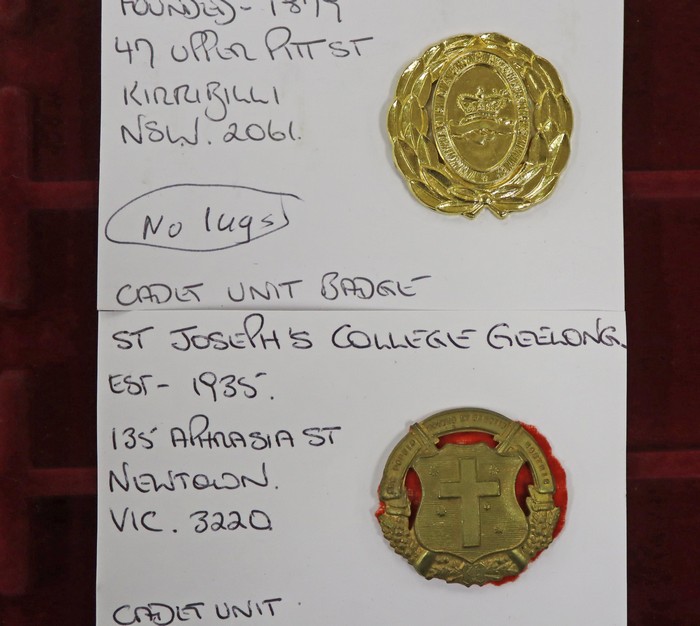 FOUNDED - 1879
47 UPPER PITT ST
KIRRIBILLI
NSW. 2061.
No lugs
CADET UNIT BADGE
ST JOSEPH'S COLLEGE GEELONG.
EST - 1935.
135 APHRASIA ST
NEWTOWN.
VIC. 3220
CADET UNIT